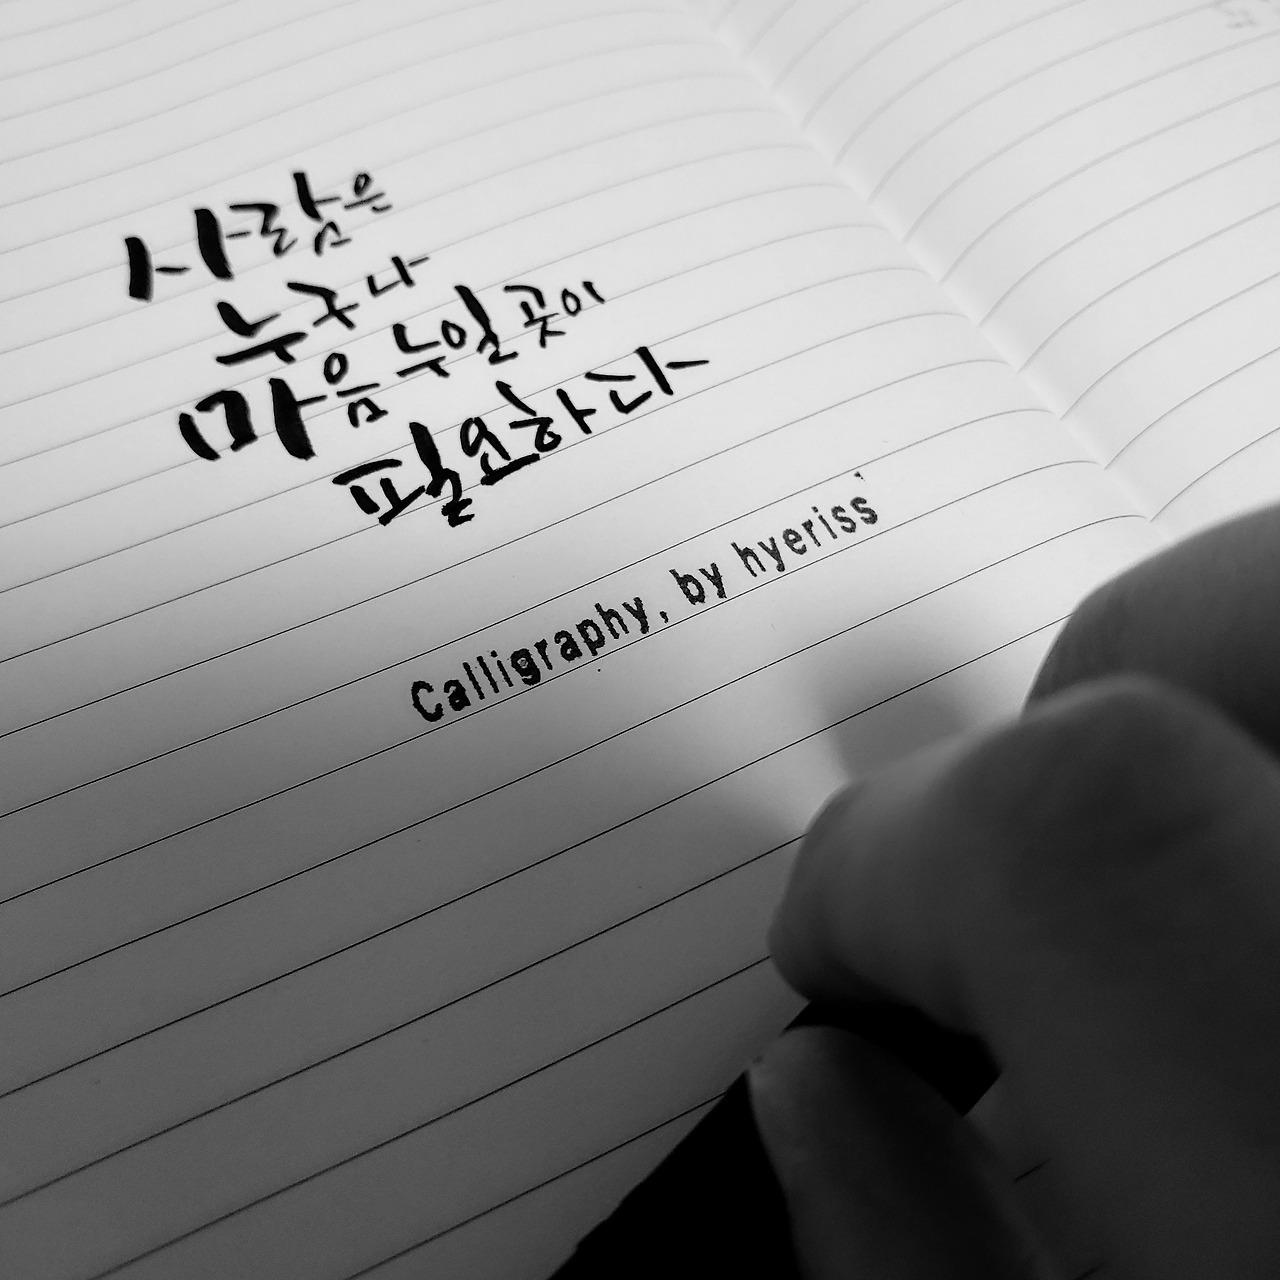 사람은
누구나
마음 누일 곳이
필요하다
Calligraphy, by hyeriss